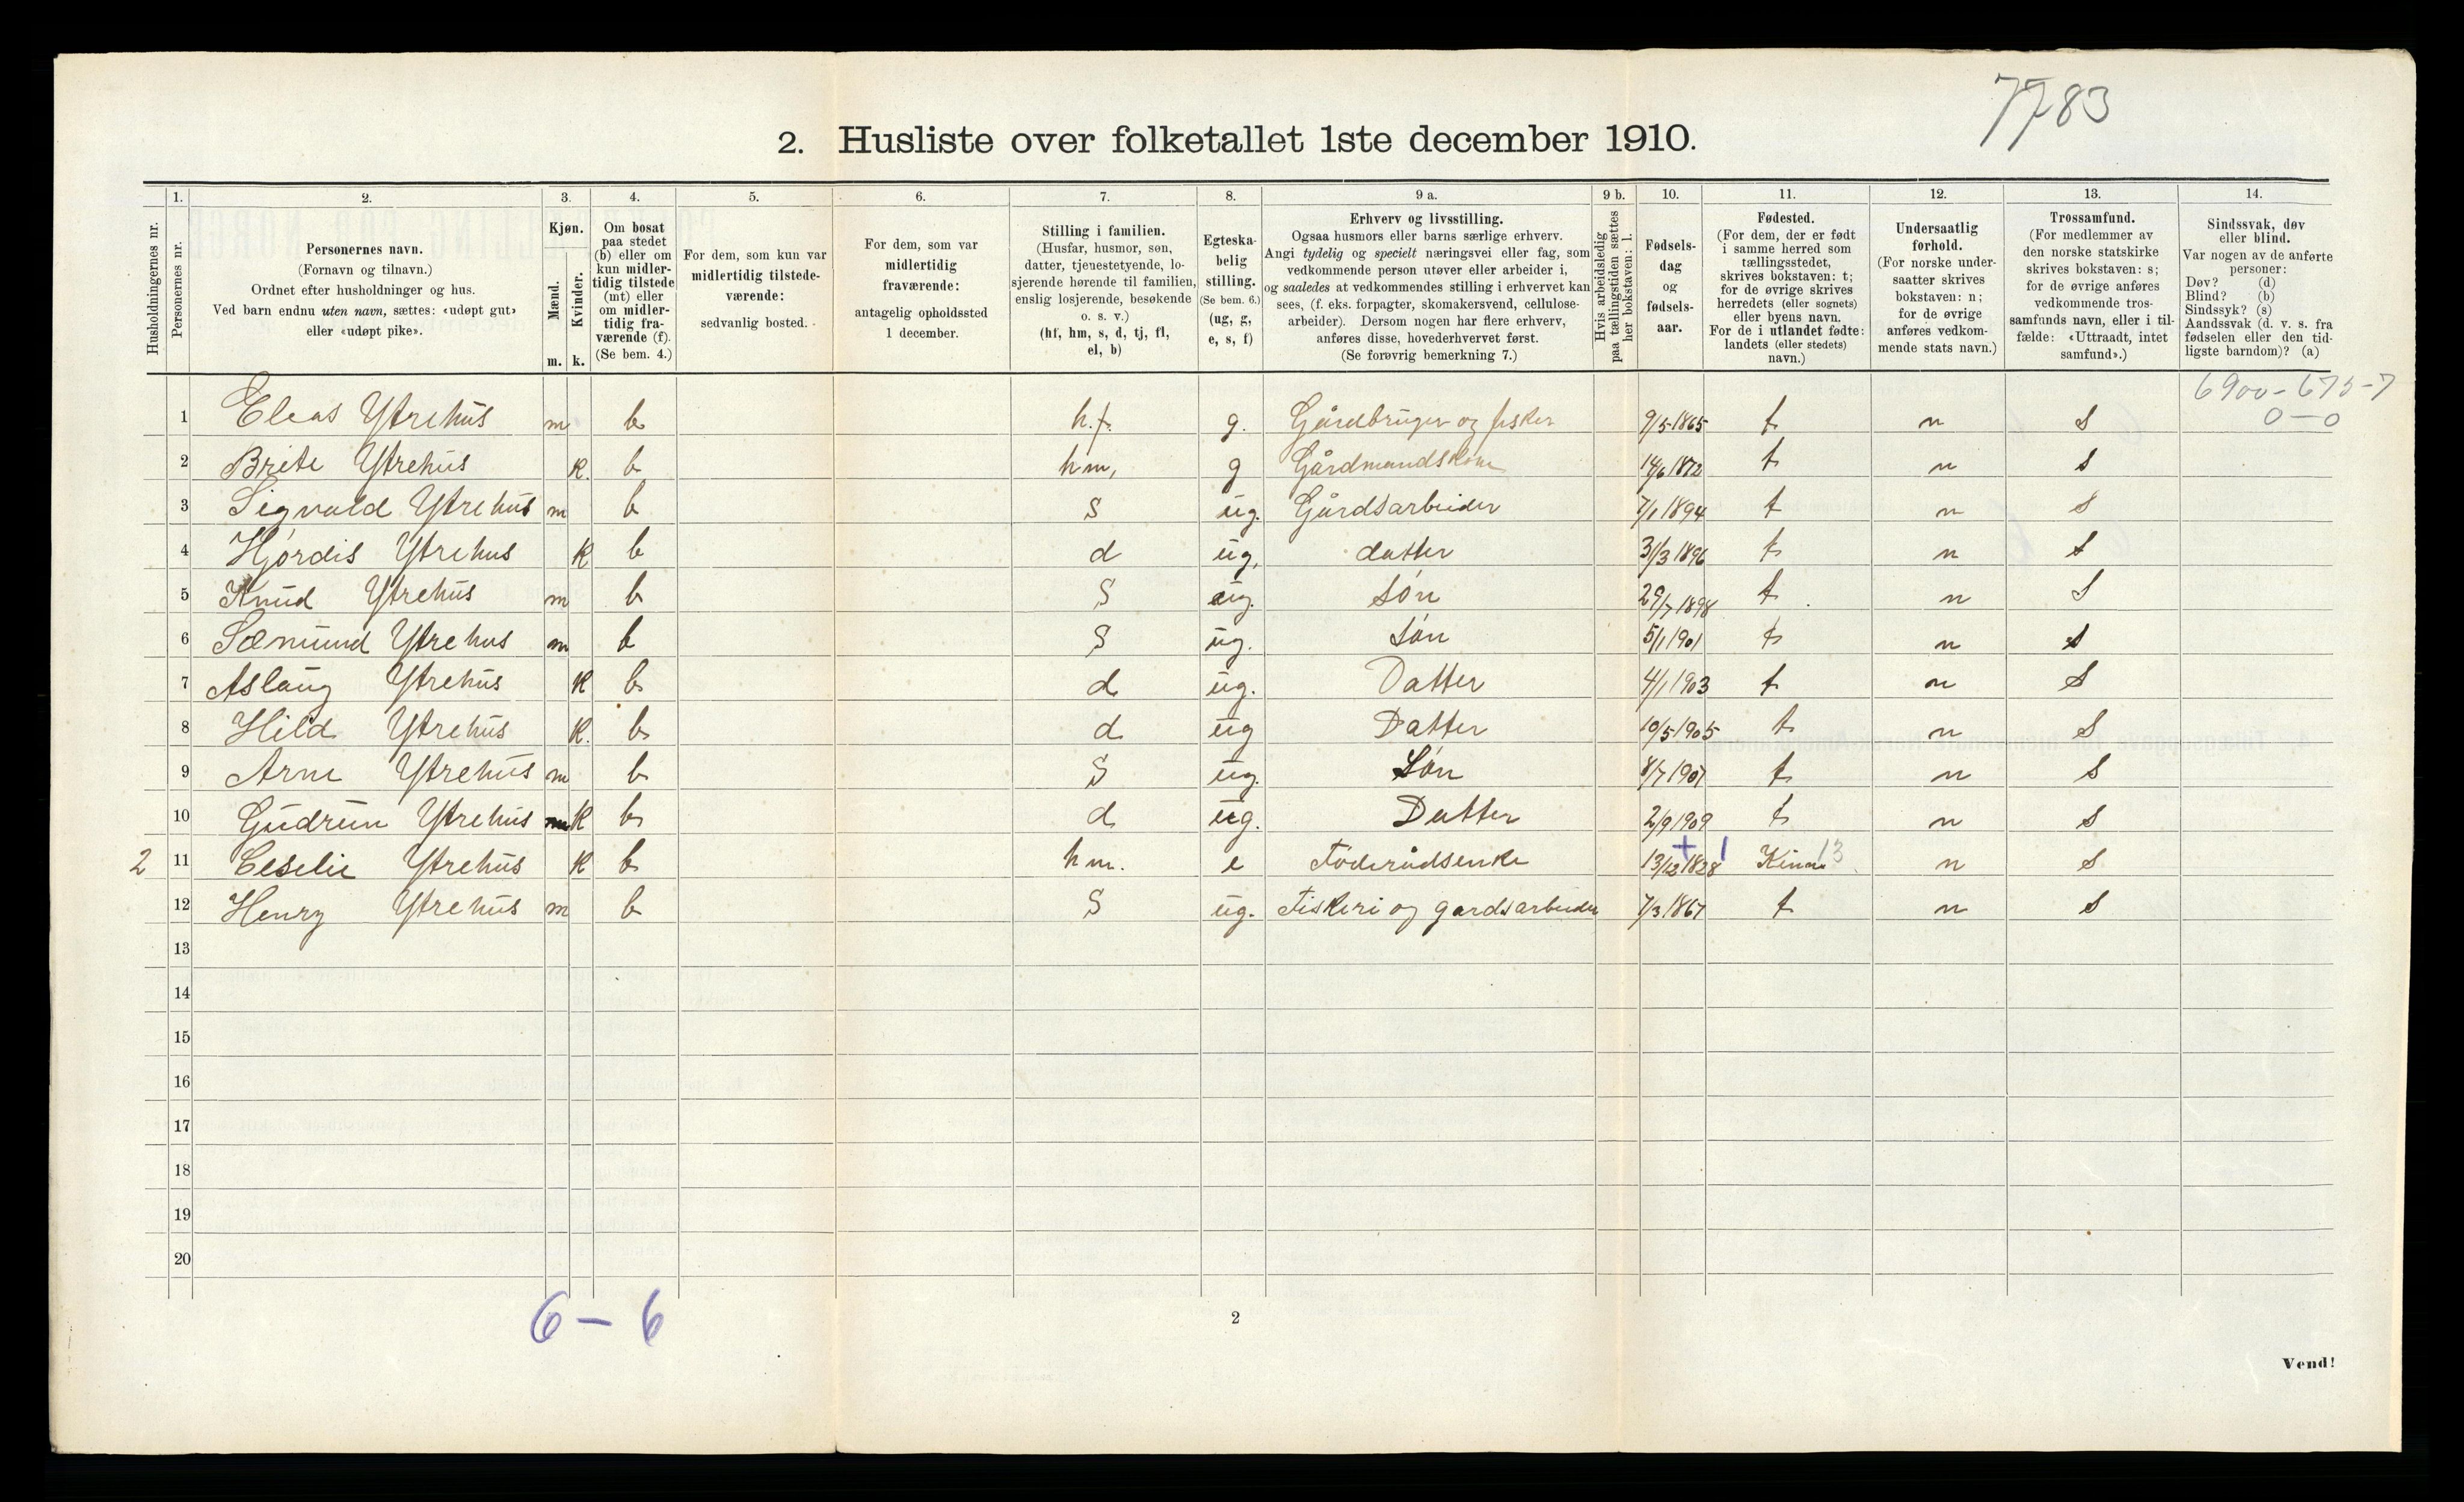 7783
2. Husliste over folketallet 1ste december 1910.
1. 2. 3. 4. 5. 6. 7. 8. 9 a. 9 b. 10. 11. 12. 13. 14.
Husholdningernes nr.
Personernes nr.
Personernes navn.
(Fornavn og tilnavn.)
Ordnet efter husholdninger og hus.
Ved barn endnu uten navn, sættes: «udøpt gut»
eller «udøpt pike».
Kjøn.
Mænd.
Kvinder.
m. k.
Om bosat
paa stedet
(b) eller om
kun midler-
tidig tilstede
(mt) eller
om midler-
tidig fra-
værende (f).
(Se bem. 4.)
For dem, som kun var
midlertidig tilstede-
værende:
sedvanlig bosted.
For dem, som var
midlertidig
fraværende:
antagelig opholdssted
1 december.
Stilling i familien.
(Husfar, husmor, søn,
datter, tjenestetyende, lo-
sjerende hørende til familien,
enslig losjerende, besøkende
o. s. v.)
(hf, hm, s, d, tj, fl,
el, b)
Egteska-
belig
stilling.
(Se bem. 6.)
(ug, g,
e, s, f)
Erhverv og livsstilling.
Ogsaa husmors eller barns særlige erhverv.
Angi tydelig og specielt næringsvei eller fag, som
vedkommende person utøver eller arbeider i,
og saaledes at vedkommendes stilling i erhvervet kan
sees, (f. eks. forpagter, skomakersvend, cellulose-
arbeider). Dersom nogen har flere erhverv,
anføres disse, hovederhvervet først.
(Se forøvrig bemerkning 7.)
Hvis arbeidsledig
paa tællingstiden sættes
her bokstaven: l.
Fødsels-
dag
og
fødsels-
aar.
Fødested.
(For dem, der er født
i samme herred som
tællingsstedet,
skrives bokstaven: t;
for de øvrige skrives
herredets (eller sognets)
eller byens navn.
For de i utlandet fødte:
landets (eller stedets)
navn.)
Undersaatlig
forhold.
(For norske under-
saatter skrives
bokstaven: n;
for de øvrige
anføres vedkom-
mende stats navn.)
Trossamfund.
(For medlemmer av
den norske statskirke
skrives bokstaven: s;
for de øvrige anføres
vedkommende tros-
samfunds navn, eller i til-
fælde: «Uttraadt, intet
samfund».)
Sindssvak, døv
eller blind.
Var nogen av de anførte
personer:
Døv? (d)
Blind? (b)
Sindssyk? (s)
Aandssvak (d. v. s. fra
fødselen eller den tid-
ligste barndom)? (a)
6900-675-7
0-0
1 Elias Ytrehus m b h.f. g. Gårdbruger og fisker 9/5-1865 t n s
2 Brite Ytrehus k. b hm, g Gårdmandskone 14/6 1872 t n s
3 Sigvald Ytrehus m b s ug. Gårdsarbeider 7/1 1894 t n s
4 Hjórdis Ytrehus k b d ug, datter 31/3 1896 t n s
5 Knud Ytrehus m b s ug. són 29/7 1898 t n s
6 Sæmund Ytrehus m b s ug. són 5/1 1901 t n s
7 Aslaug Ytrehus k b d ug. Datter 4/1 1903 t n s
8 Hild Ytrehus k. b d ug Datter 10/5 1905 t n s
9 Arne Ytrehus m b s ug. Són 8/7 1907 t n s
10 Gudrun Ytrehus k b d ug. Datter 2/9 1909 t n s
2 11 Ceselie Ytrehus k b hm. e Föderådsenke 13/12 1828 + 1 Kinn 13 n s
12 Henry Ytrehus m b s ug. Fiskeri og gardsarbeider 7/3 1867 t n s
13
14
15
16
17
18
19
20
6 - 6
2
Vend!